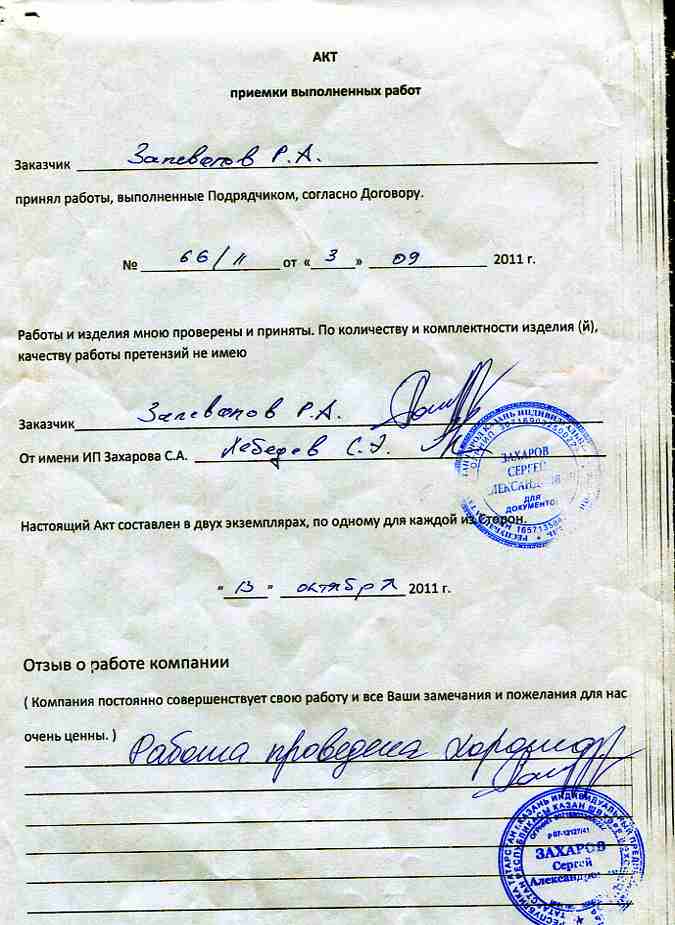 АКТ
приемки выполненных работ
Заказчик Запевалов Р.А.
принял работы, выполненные Подрядчиком, согласно Договору.
№ 66/11 от «3» 09 2011 г.
Работы и изделия мною проверены и приняты. По количеству и комплектности изделия (й),
качеству работы претензий не имею
Заказчик Запевалов Р.А.
От имени ИП Захарова С.А. Лебедев С.Э.
ЗАХАРОВ
СЕРГЕЙ
ДЛЯ
ДОКУМЕНТО
Настоящий Акт составлен в двух экземплярах, по одному для каждой из сторон.
"13" октября 2011 г.
Отзыв о работе компании
( Компания постоянно совершенствует свою работу и все Ваши замечания и пожелания для нас
очень ценны. )
Работа проведена хорошо.
ЗАХАРОВ
Сергей